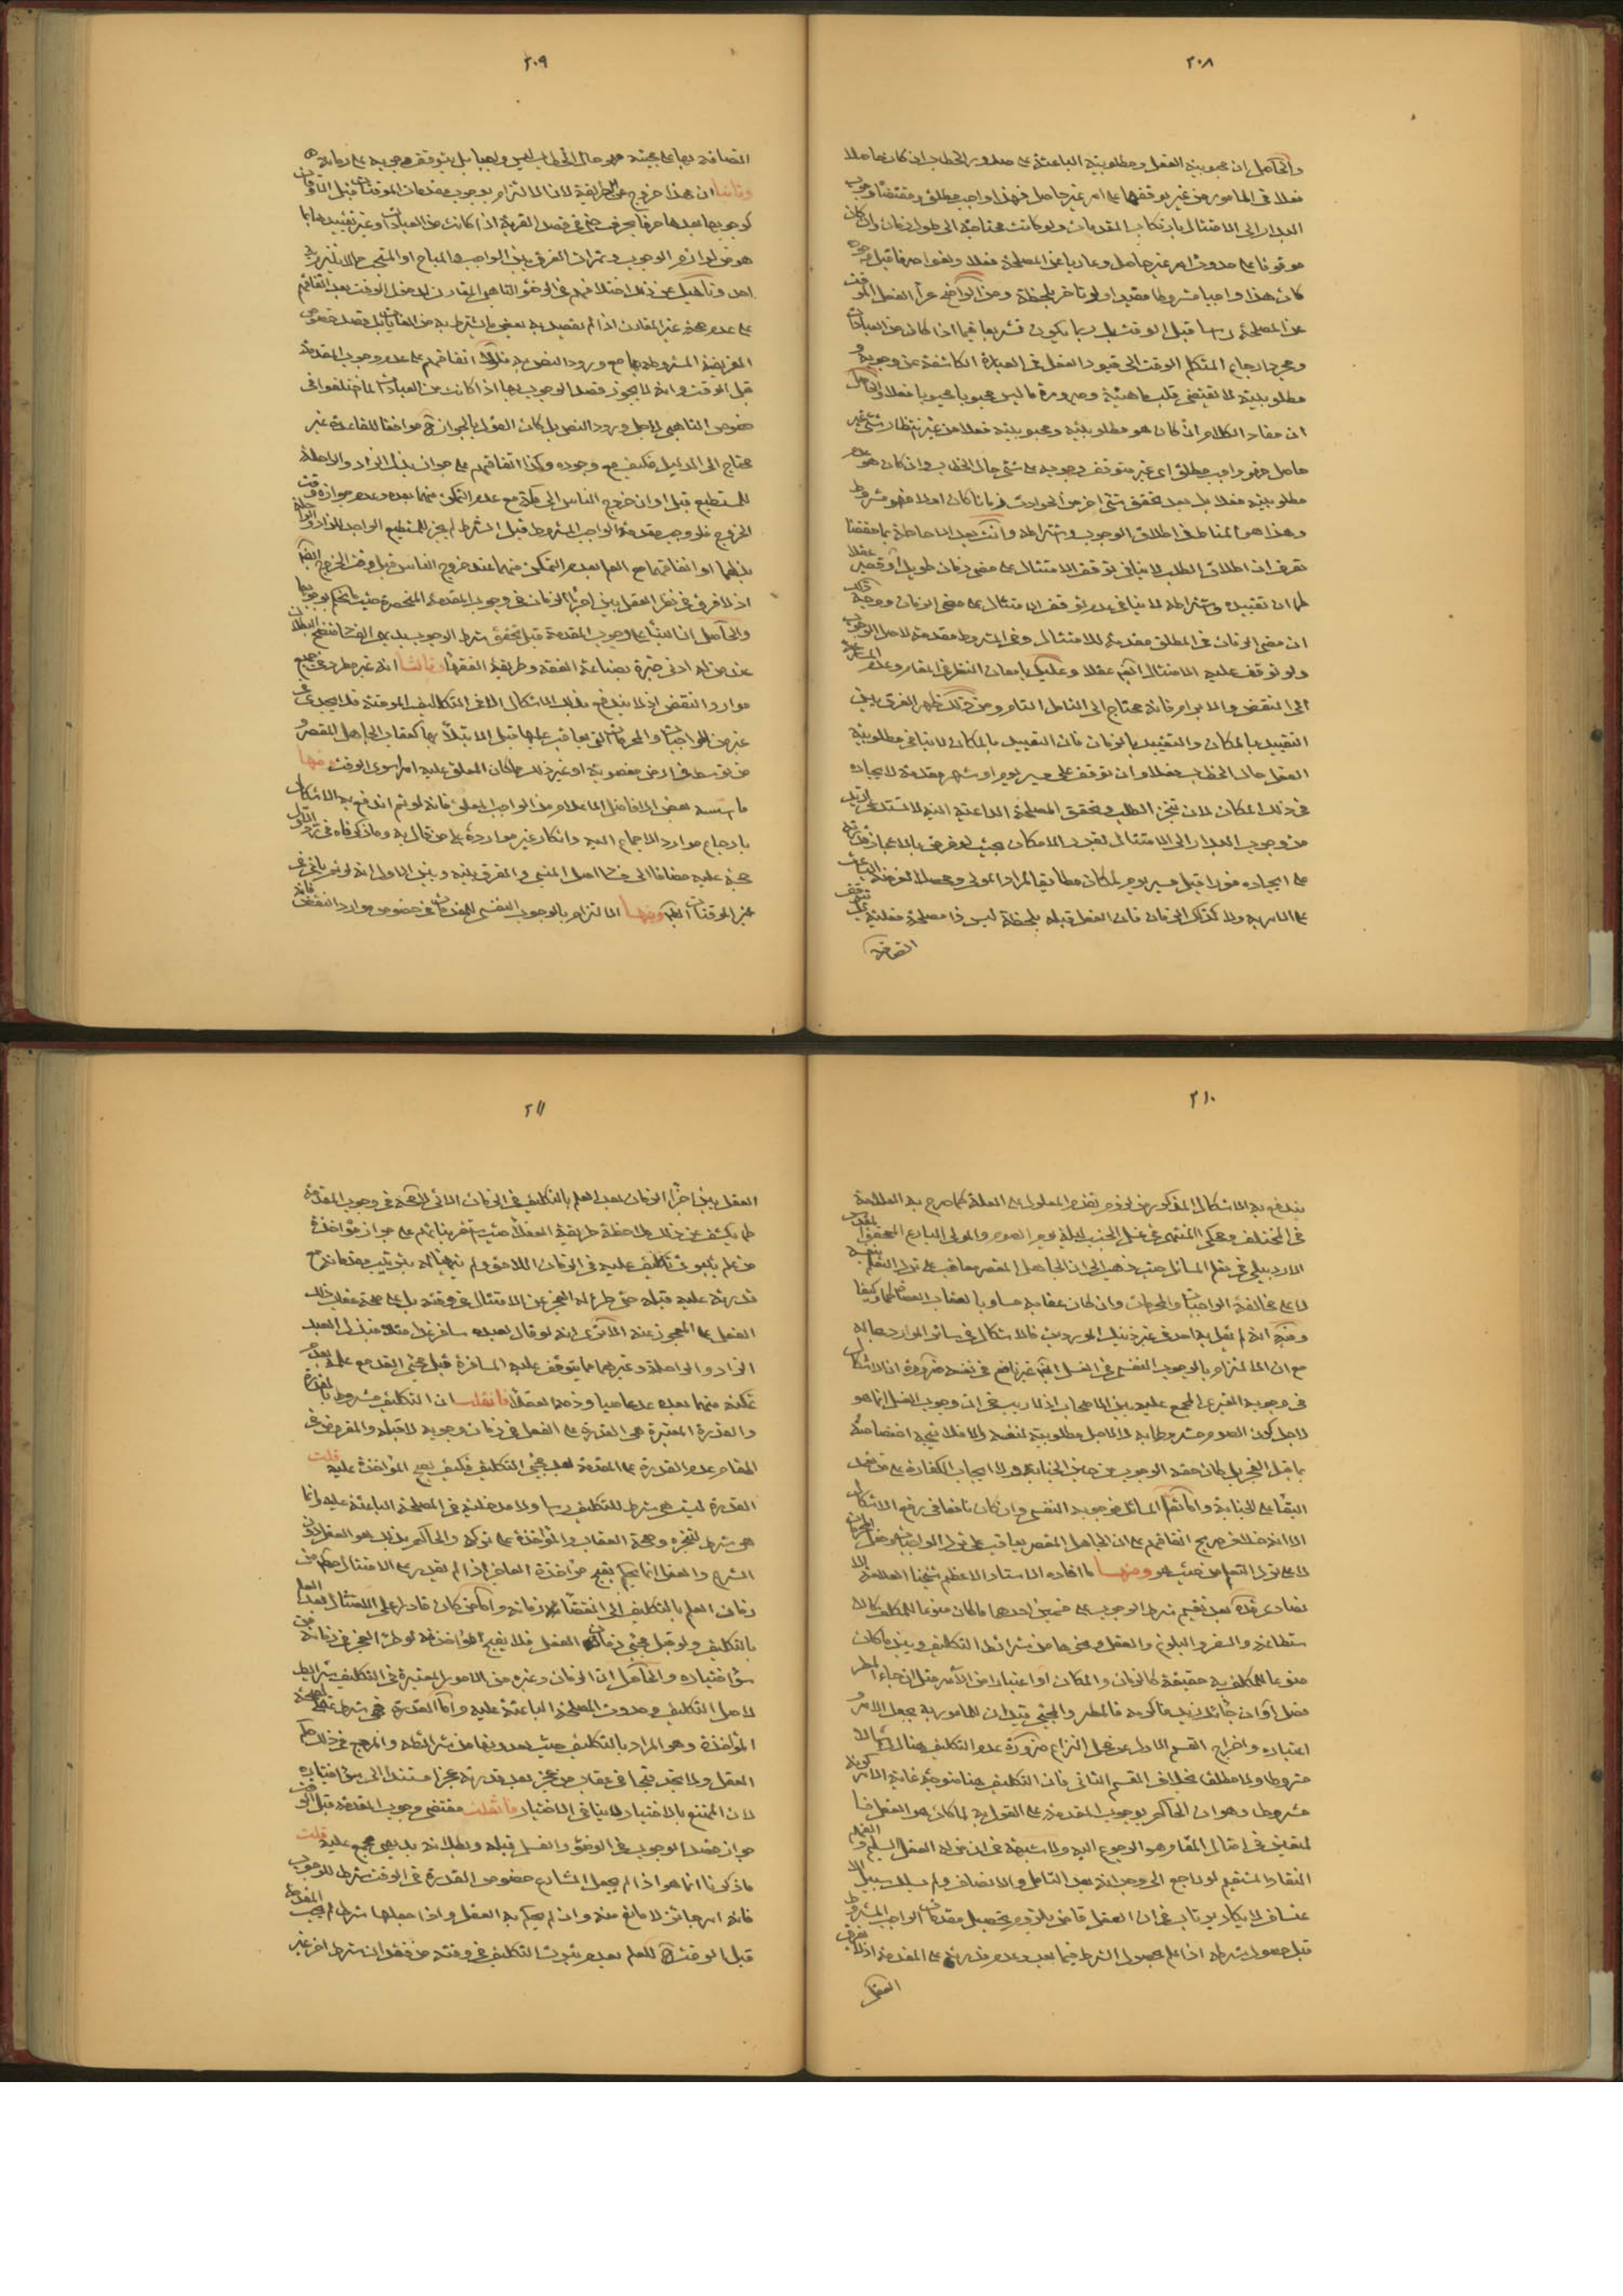 ٢٠٨
والحاصل ان محبوبية الفعل ومطلوبيته الباعثة على صدور الخطاب ان كان حاصلا
فعلا في المامور من غير توقفها على امر غير حاصل فهذا واجب مطلق ومقتضاه وجوب
البدار الى الامتثال بارتكاب المقدمات ولو كانت محتاجة الى طول زمان وان كان
موقوفا على حدوث امر غير حاصل وعاريا عن المصلحة فعلا ولغوا صرفا قبل
كان هذا واجبا مشروطا مقيدا ولو تاخر بلحظة ومن الواضح عراء الفعل الموقت
عن المصلحة راسا قبل الوقت بل ربما يكون تشريعا فيما اذا كان من العبادات
ومجرد ارجاع المتكلم الوقت الى قيود الفعل في العبارة الكاشفة عن وجوبه و
مطلوبيته لا يقتضي قلب ماهيته وصيرورة ما ليس محبوبا محبوبا فعلا والحاصل
ان مفاد الكلام ان كان هو مطلوبيته ومحبوبيته فعلا من غير انتظار شيء غير
حاصل فهو واجب مطلق اي غير متوقف وجوبه على شيء حال الخطاب وان كان هو عدم
مطلوبيته فعلا بل بعد تحقق شيء اخر من الحوادث زمانا كان اولا فهو مشروط
وهذا هو المناط في اطلاق الوجوب واشتراطه وانت بعد الاحاطة بما حققنا
تعرف ان اطلاق الطلب لا ينافي توقف الامتثال على مضي زمان طويل او قصير عقلا
كما ان تقييده واشتراطه لا ينافي عدم توقف الامتثال على مضي الزمان ووجه ذلك
ان مضي الزمان في المطلق مقدمة للامتثال وفي المشروط مقدمة لاصل الوجوب
ولو توقف عليه الامتثال ايضا عقلا وعليك بامعان النظر في المقام وعدم المسارعة
الى النقض والابرام فانه محتاج الى التامل التام ومن ذلك ظهر الفرق بين
التقييد بالمكان والتقييد بالزمان فان التقييد بالمكان لا ينافي مطلوبية
الفعل حال الخطاب فعلا وان توقف على سير يوم او شهر مقدمة لايجاده
في ذلك المكان لان تنجز الطلب وتحقق المصلحة الداعية اليه لا تستدعي ازيد
من وجوب البدار الى الامتثال بقدر الامكان بحيث لو فرض بالاعجاز قدرته
على ايجاده فورا قبل سير يوم لكان مطابقا لمراد المولى ومحصلا لغرضه الباعث
على الامر به ولا كذلك الزمان فان الفعل قبله بلحظة ليس ذا مصلحة فعلية
٢٠٩
وثانيا ان هذا خروج عن الطريقة لان الالتزام بوجوب مقدمات الموقتات قبل الاوقات
كوجوبها بعدها حرفا بحرف حتى في قصد القربة اذا كانت من العبادات او غير تقييدها بما
هو من لوازم الوجوب وثمرات الفرق بين الواجب والمباح او المستحب مما لا يلتزم به
احد وناهيك عن ذلك اختلافهم في الوضوء التاهبي المقارن لدخول الوقت بعد اتفاقهم
على عدم صحة غير المقارن اذا لم يقصد به بعض ما يشترط به من الغايات بل قصد خصوص
الفريضة المشروطة بها مع ورود النص به فلولا اتفاقهم على عدم وجوب المقدمة
قبل الوقت وانه لا يجوز قصد الوجوب بها اذا كانت من العبادات لما اختلفوا في
خصوص التاهبي لاجل ورود النص بل كان القول بالجواز ح موافقا للقاعدة غير
محتاج الى الدليل فكيف مع وجوده وكذا اتفاقهم على جواز بذل الزاد والراحلة
للمستطيع قبل اوان خروج الناس الى مكة مع عدم التمكن منهما بعده وعدم جوازه وقت
الخروج فلو وجب مقدمة الواجب المشروط قبل الشرط لم يجز للمستطيع الواجد للزاد والراحلة
بذلهما او اتفاقهما مع العلم بعدم التمكن منهما عند خروج الناس قبل وقت الخروج ايضا
اذ لا فرق في نظر العقل بين اجزاء الزمان في وجوب المقدمة المنحصرة حيث يحكم بوجوبها
والحاصل ان البناء على وجوب المقدمة قبل تحقق شرط الوجوب بديهي البطلان
عند من له ادنى خبرة بصناعة الفقه وطريقة الفقهاء وثالثا انه غير مطرد في جميع
موارد النقض اذ لا يندفع بذلك الاشكال الا في التكاليف الموقتة فلا يجدي في
غير من الواجبات والمحرمات التي يعاقب عليها قبل الابتلاء بها كعقاب الجاهل المقصر و
من توسط في ارض مغصوبة او غير ذلك مما كان المعلق عليه امرا سوى الوقت ومنها
ما اسسه بعض الافاضل الاعلام من الواجب المعلق فانه لو تم اندفع به الاشكال
بارجاع موارد الاجماع اليه وانكار غير موارده على من قال به وما ذكرناه في رد الاول
حجة عليه مضافا الى
غير الموقتات ايضا ومنها الالتزام بالوجوب النفسي للمقدمات في خصوص موارد النقض فانه
٢١٠
يندفع به الاشكال المذكور من لزوم تقدم المعلول على العلة كما صرح به العلامة
في المختلف وحكي المنتهى في غسل الجنب لليلة يوم الصوم والمولى البارع المحقق المقدس
الاردبيلي في تعلم المسائل حيث ذهب الى ان الجاهل المقصر معاقب على ترك التعلم بنفسه
لا على مخالفة الواجبات والمحرمات وان كان عقابه مساويا لعقاب العصاة كما وكيفا
وفيه انه لم يقل به احد في غير ذينك الموردين فالاشكال في سائر الموارد بحاله
مع ان الالتزام بالوجوب النفسي في الغسل ايضا غير نافع في نفسه ضرورة ان الاشكال
في وجوبه الغيري المجمع عليه بين الاصحاب اذ لا ريب في ان وجوب الغسل انما هو
لاجل كون الصوم مشروطا به لا لاجل مطلوبيته لنفسه والا فلا يتجه اختصاصه
بما قبل الفجر بل كان حقه الوجوب من حين الجنابة ولا ايجاب الكفارة على من تعمد
البقاء على الجنابة واما تعلم المسائل فوجوبه النفسي وان كان نافعا في رفع الاشكال
الا انه خلاف صريح اتفاقهم على ان الجاهل المقصر يعاقب على ترك الواجبات وفعل المحرمات
لا على ترك التعلم من حيث هو ومنها ما افاده الاستاد الاعظم شيخنا العلامة الا
نصاري قده بعد تقسيم شرط الوجوب على قسمين احدهما ما كان منوعا للمكلف كالا
ستطاعة والسفر والبلوغ والعقل ونحوها من شرائط التكليف وبين ما كان
منوعا للمكلف به حقيقة كالزمان والمكان او اعتبارا من الآمر مثل ان جاء المطر
فصل او ان جائك زيد فاكرمه فالمطر والمجيء قيدان للمامور به بجعل الامر و
اعتباره واخراج القسم الاول عن محل النزاع ضرورة عدم التكليف هناك اصلا لا
مشروطا ولا مطلقا بخلاف القسم الثاني فان التكليف هنا متوجه غاية الامر كونه
مشروطا وهو ان الحاكم بوجوب المقدمة على القول به لما كان هو العقل
المتعين في امثال المقام هو الرجوع اليه ولا شبهة في ان من له العقل السليم والفهم
النقاد المستقيم لو راجع الى وجدانه بعد التامل والانصاف ولم يسلك سبيل الا
عتساف لا يكاد يرتاب في ان العقل قاض بلزوم تحصيل مقدمات الواجب المشروط
قبل حصول شرطه اذا علم بحصول الشرط فيما بعد وعدم قدرته على المقدمة اذ لا يفرق
العقل
٢١١
العقل بين اجزاء الزمان بعد العلم بالتكليف في الزمان الاتي في وجوب المقدمة
كما يكشف عن ذلك ملاحظة طريقة العقلاء حيث استقر بنائهم على جواز مؤاخذة
من علم بثبوت تكليف عليه في الزمان اللاحق ولم يتهيا له بترتيب مقدماته مع
قدرته عليه قبله حتى طرء له العجز عن الامتثال في وقته بل على صحة عقابه ذلك
الفعل المعجوز عنه الا ترى انه لو قال لعبده سافر غدا مثلا فبذل العبد
الزاد والراحلة وغيرهما مما يتوقف عليه المسافرة قبل مجيء الغد مع علمه بعدم
تمكنه منهما بعده عد عاصيا وذمه العقلاء فان قلت ان التكليف مشروط بالقدرة
والقدرة المعتبرة هي القدرة على الفعل في زمان وجوبه لا قبله والمفروض في
المقام عدم القدرة على المقدمة بعد مجيء التكليف فكيف يصح المؤاخذة عليه قلت
القدرة ليست هي شرط للتكليف راسا ولا مدخلية في المصلحة الباعثة عليه وانما
هي شرط لتنجزه وصحة العقاب والمؤاخذة على تركه والحاكم بذلك هو العقل دون
الشرع والعقل انما يحكم بقبح مؤاخذة العاجز اذا لم يقدر على الامتثال من
زمان العلم بالتكليف الى انقضاء زمانه واما من كان قادرا على الامتثال بعد العلم
بالتكليف ولو قبل مجيء زمان الفعل فلا يقبح المؤاخذة لو طرء العجز في زمانه من
سوء اختياره والحاصل ان الزمان وغيره من الامور المعتبرة في التكليف شرائط
لاصل التكليف وحدوث المصلحة الباعثة عليه واما القدرة فهي شرط لصحة
المؤاخذة وهو المراد بالتكليف حيث يعدونها من شرائطه والمرجع في ذلك حكم
العقل ولا نجد قبحا في عقاب من عجز بعد قدرته عجزا مستندا الى سوء اختياره
لان الممتنع بالاختيار لا ينافي الاختيار فان قلت مقتضى وجوب المقدمة قبل الوقت
جواز قصد الوجوب في الوضوء والغسل قبله وبطلانه بديهي مجمع عليه قلت
ما ذكرنا انما هو اذا لم يجعل الشارع خصوص القدرة في الوقت شرطا للوجوب
فانه امر جائز لا مانع منه وان لم يحكم به العقل واذا جعلها شرطا لم يجب المقدمة
قبل الوقت للعلم بعدم ثبوت التكليف في وقته من فقدان شرط اخر غير